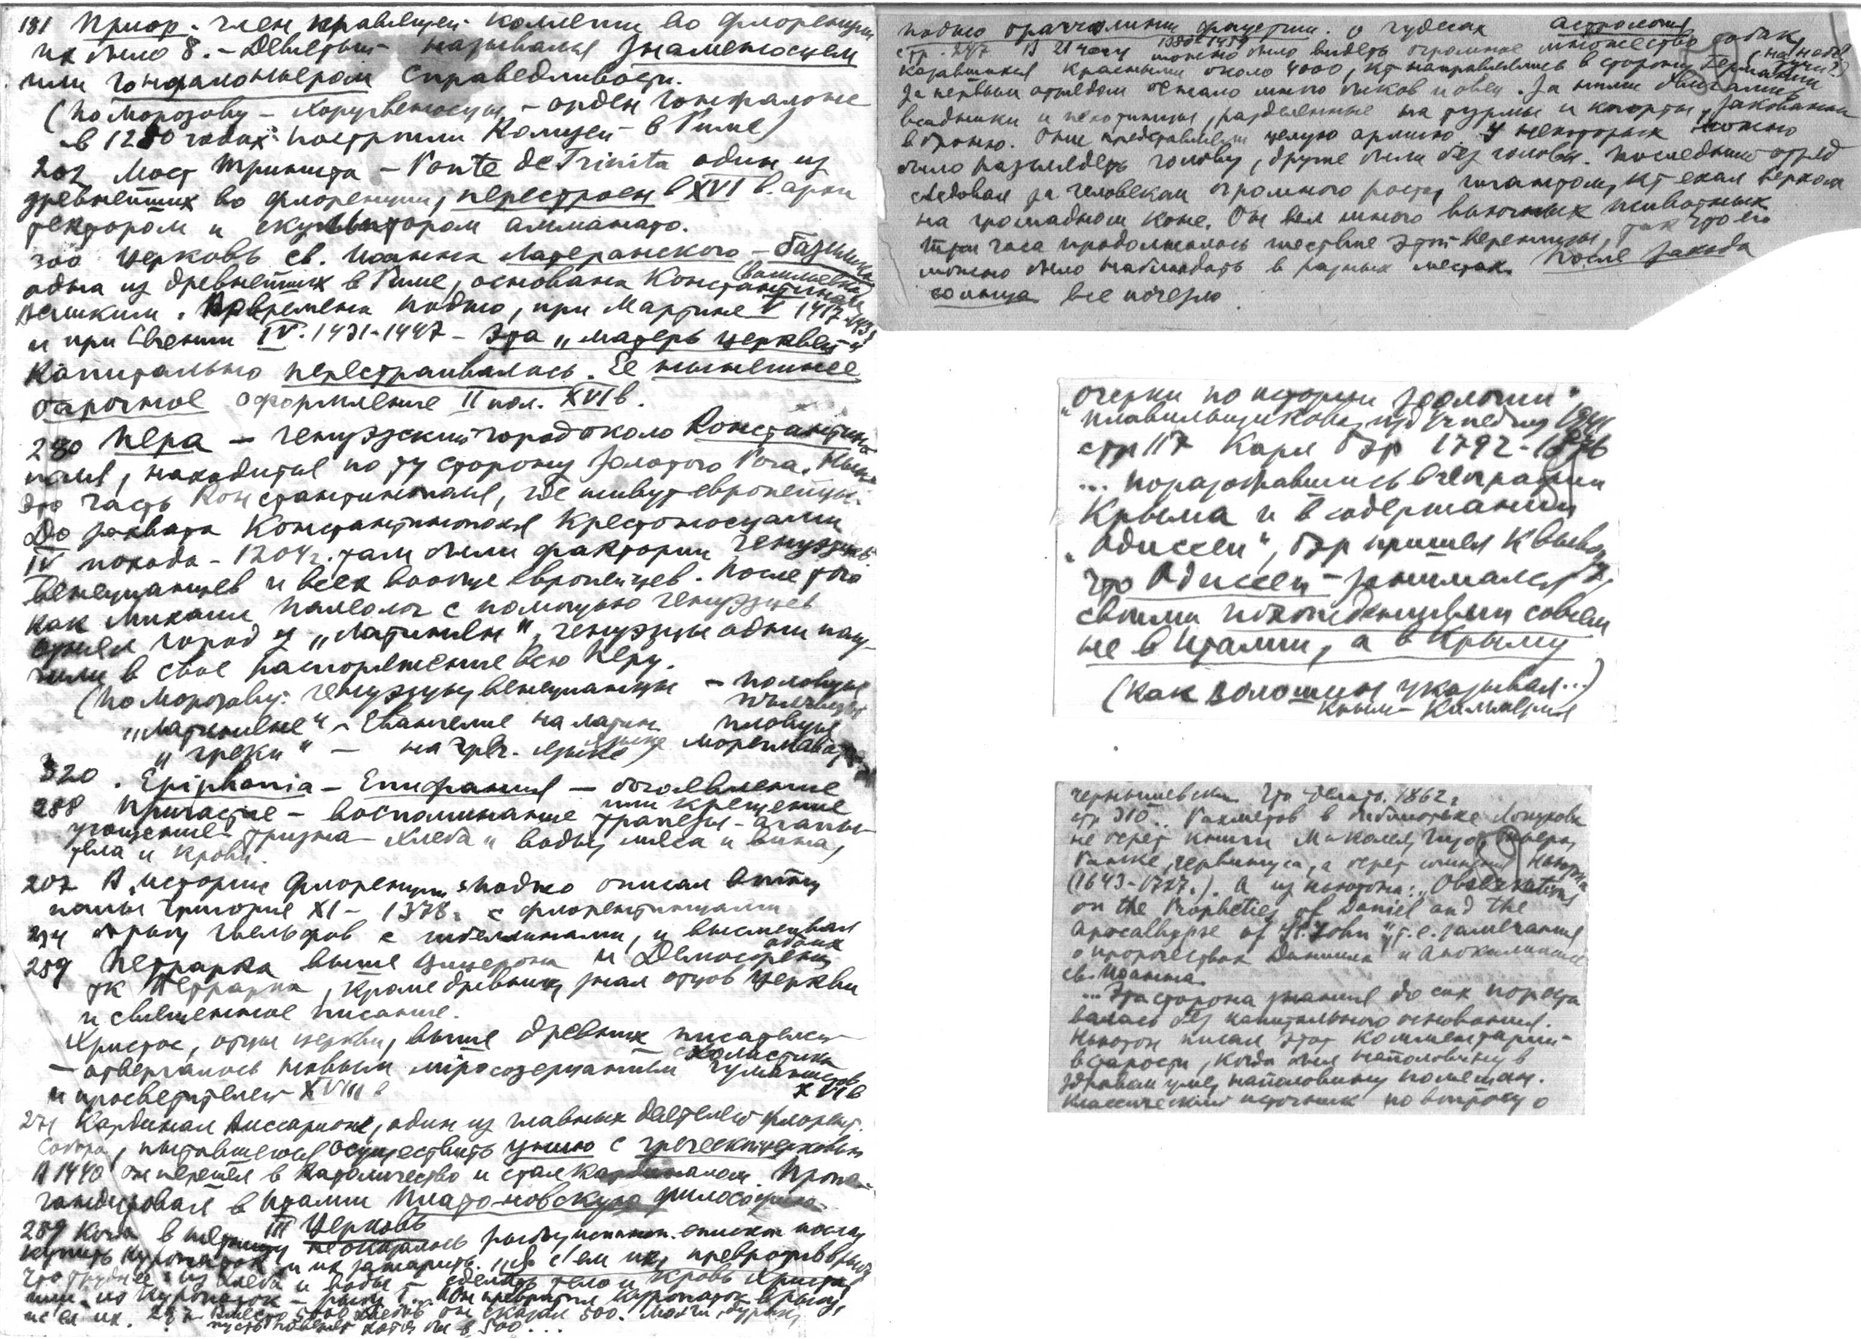 181 Приор - член правящей коллегии во Флоренции
их было 8. - Девятый назывался знаменосцем
или гонфалоньером справедливости.
(по Морозову - хоругвеносцы - орден Гонфалоне
в 1280 годах построили Колизей - в Риме)
202 Мост Тринита - Ponte de Trinita один из
древнейших во Флоренции, перестроен в XVI в. архи
тектором и скульптором Амманато.
Церковь св. Иоанна Латеранского - базилика
одна из древнейших в Риме, основана Константином
Великим. Во времена Поджо, при Мартине V 1417-1431
и при Евгении IV. 1431-1447 - эта „матерь церквей"
капитально перестраивалась. Ее нынешнее
барочное оформление II пол. XVI в.
280 Пера - генуэзский город около Константино
поля, находится по ту сторону Золотого Рога. Ныне
это часть Константинополя, где живут европейцы.
До захвата Константинополя крестоносцами
IV похода - 1204 г. там были фактории генуэзцев
венецианцев и всех вообще европейцев. После того
как Михаил Палеолог с помощью генуэзцев
отнял город у „Латинян", генуэзцы одни полу-
чили в свое распоряжение всю Перу.
(По Морозову: генуэзцы, венецианцы - половцы
„Латиняне" - Евангелие на латин. языке пловцы
„греки" - на греч. языке) мореплаватели
320. Epiphania - Епифания - богоявление
или крещение
288 Причастие - воспоминание трапезы - агапы -
угощение - тризна - хлеба и воды, мяса и вина,
тела и крови.
207 В „истории Флоренции" Поджо описал битву
папы Григория XI - 1378 г. с флорентинцами
234 гвельфов с гибеллинами, и высмеивал
обоих
259 Петрарка выше Цицерона и Демосфена
тк Петрарка, кроме древних, знал отцов церкви
и священное писание.
Христос, отцы церкви, выше древних писателей
схоластика
- отвергалось новым миросозерцанием гуманистов
XVI в
и просветителей XVIII в
271 Кардинал Виссарион, один из главных деятелей Флорент.
собора, пытавшегося осуществить унию с греческой церковью
В 1440 он перешел в католичество и стал кардиналом. Пропа-
гандировал в Италии платоновскую философию
III Церковь
289 Когда в пятницу не оказалось рыбы, епископ послал
купить куропаток и их зажарить. „Я съем их, превратив в рыбу
что труднее: из хлеба и воды сделать тело и кровь Христа
или из куропаток - рыбу?.. Он превратил куропаток в рыбу,
и съел их. 297 Вместо 5000 он сказал 500. Молчи, дурак,
пусть поверят хотя бы в 500...
Поджо Браччолини Фацетии. О чудесах астрологии
стр. 247 В 21 часу можно было видеть огромное множество собак,
казавшихся красными около 4000, кт направлялись в сторону Германии
За первым отрядом бежало много быков и овец. За ними двигались
всадники и пехотинцы, разделенные на турмы и когорты, закованные
в броню. Они представляли целую армию. У некоторых можно
было разглядеть голову, другие были без головы. Последний отряд
следовал за человеком огромного роста, гигантом, кт ехал верхом
на громадном коне. Он вел много вьючных животных
Три часа продолжалось шествие этой вереницы, так что его
можно было наблюдать в разных местах. После захода
солнца все исчезло.
„Очерки по истории зоологии"
Плавильщикова, изд Учпедгиз 1941
стр 117 Карл Бэр 1792-1876
... поразобравшись в географии
Крыма и в содержании
„Одиссеи", Бэр пришел к выводу
что Одиссей - занимался
своими похождениями совсем
не в Италии, а в Крыму
(как Волошин указывал...)
Крым - Киммерия
Чернышевский Что делать. 1862 г
стр 310.. Рахметов в библиотеке Лопухова
не берет книги Маколея, Гизо, Тьера,
Ранке, Гервинуса, а берет сочинения Ньютона
(1643-1727.). А из Ньютона: „Observations
on the Propheties of Daniel and the
Apocalbypse of St. John", т.е. замечания
о пророчествах Даниила и Апокалипсисе
св. Иоанна.
... Эта сторона знания до сих пор оста
валась без капитального основания.
Ньютон писал этот комментарий -
в старости, когда был наполовину в
здравом уме, наполовину помешан.
Классический источник по вопросу о